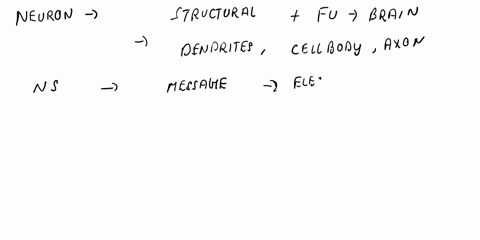 NEURON → STRUCTURAL + FU → BRAIN
→ DENDRITES, CELL BODY, AXON
NS → MESSAGE → ELE